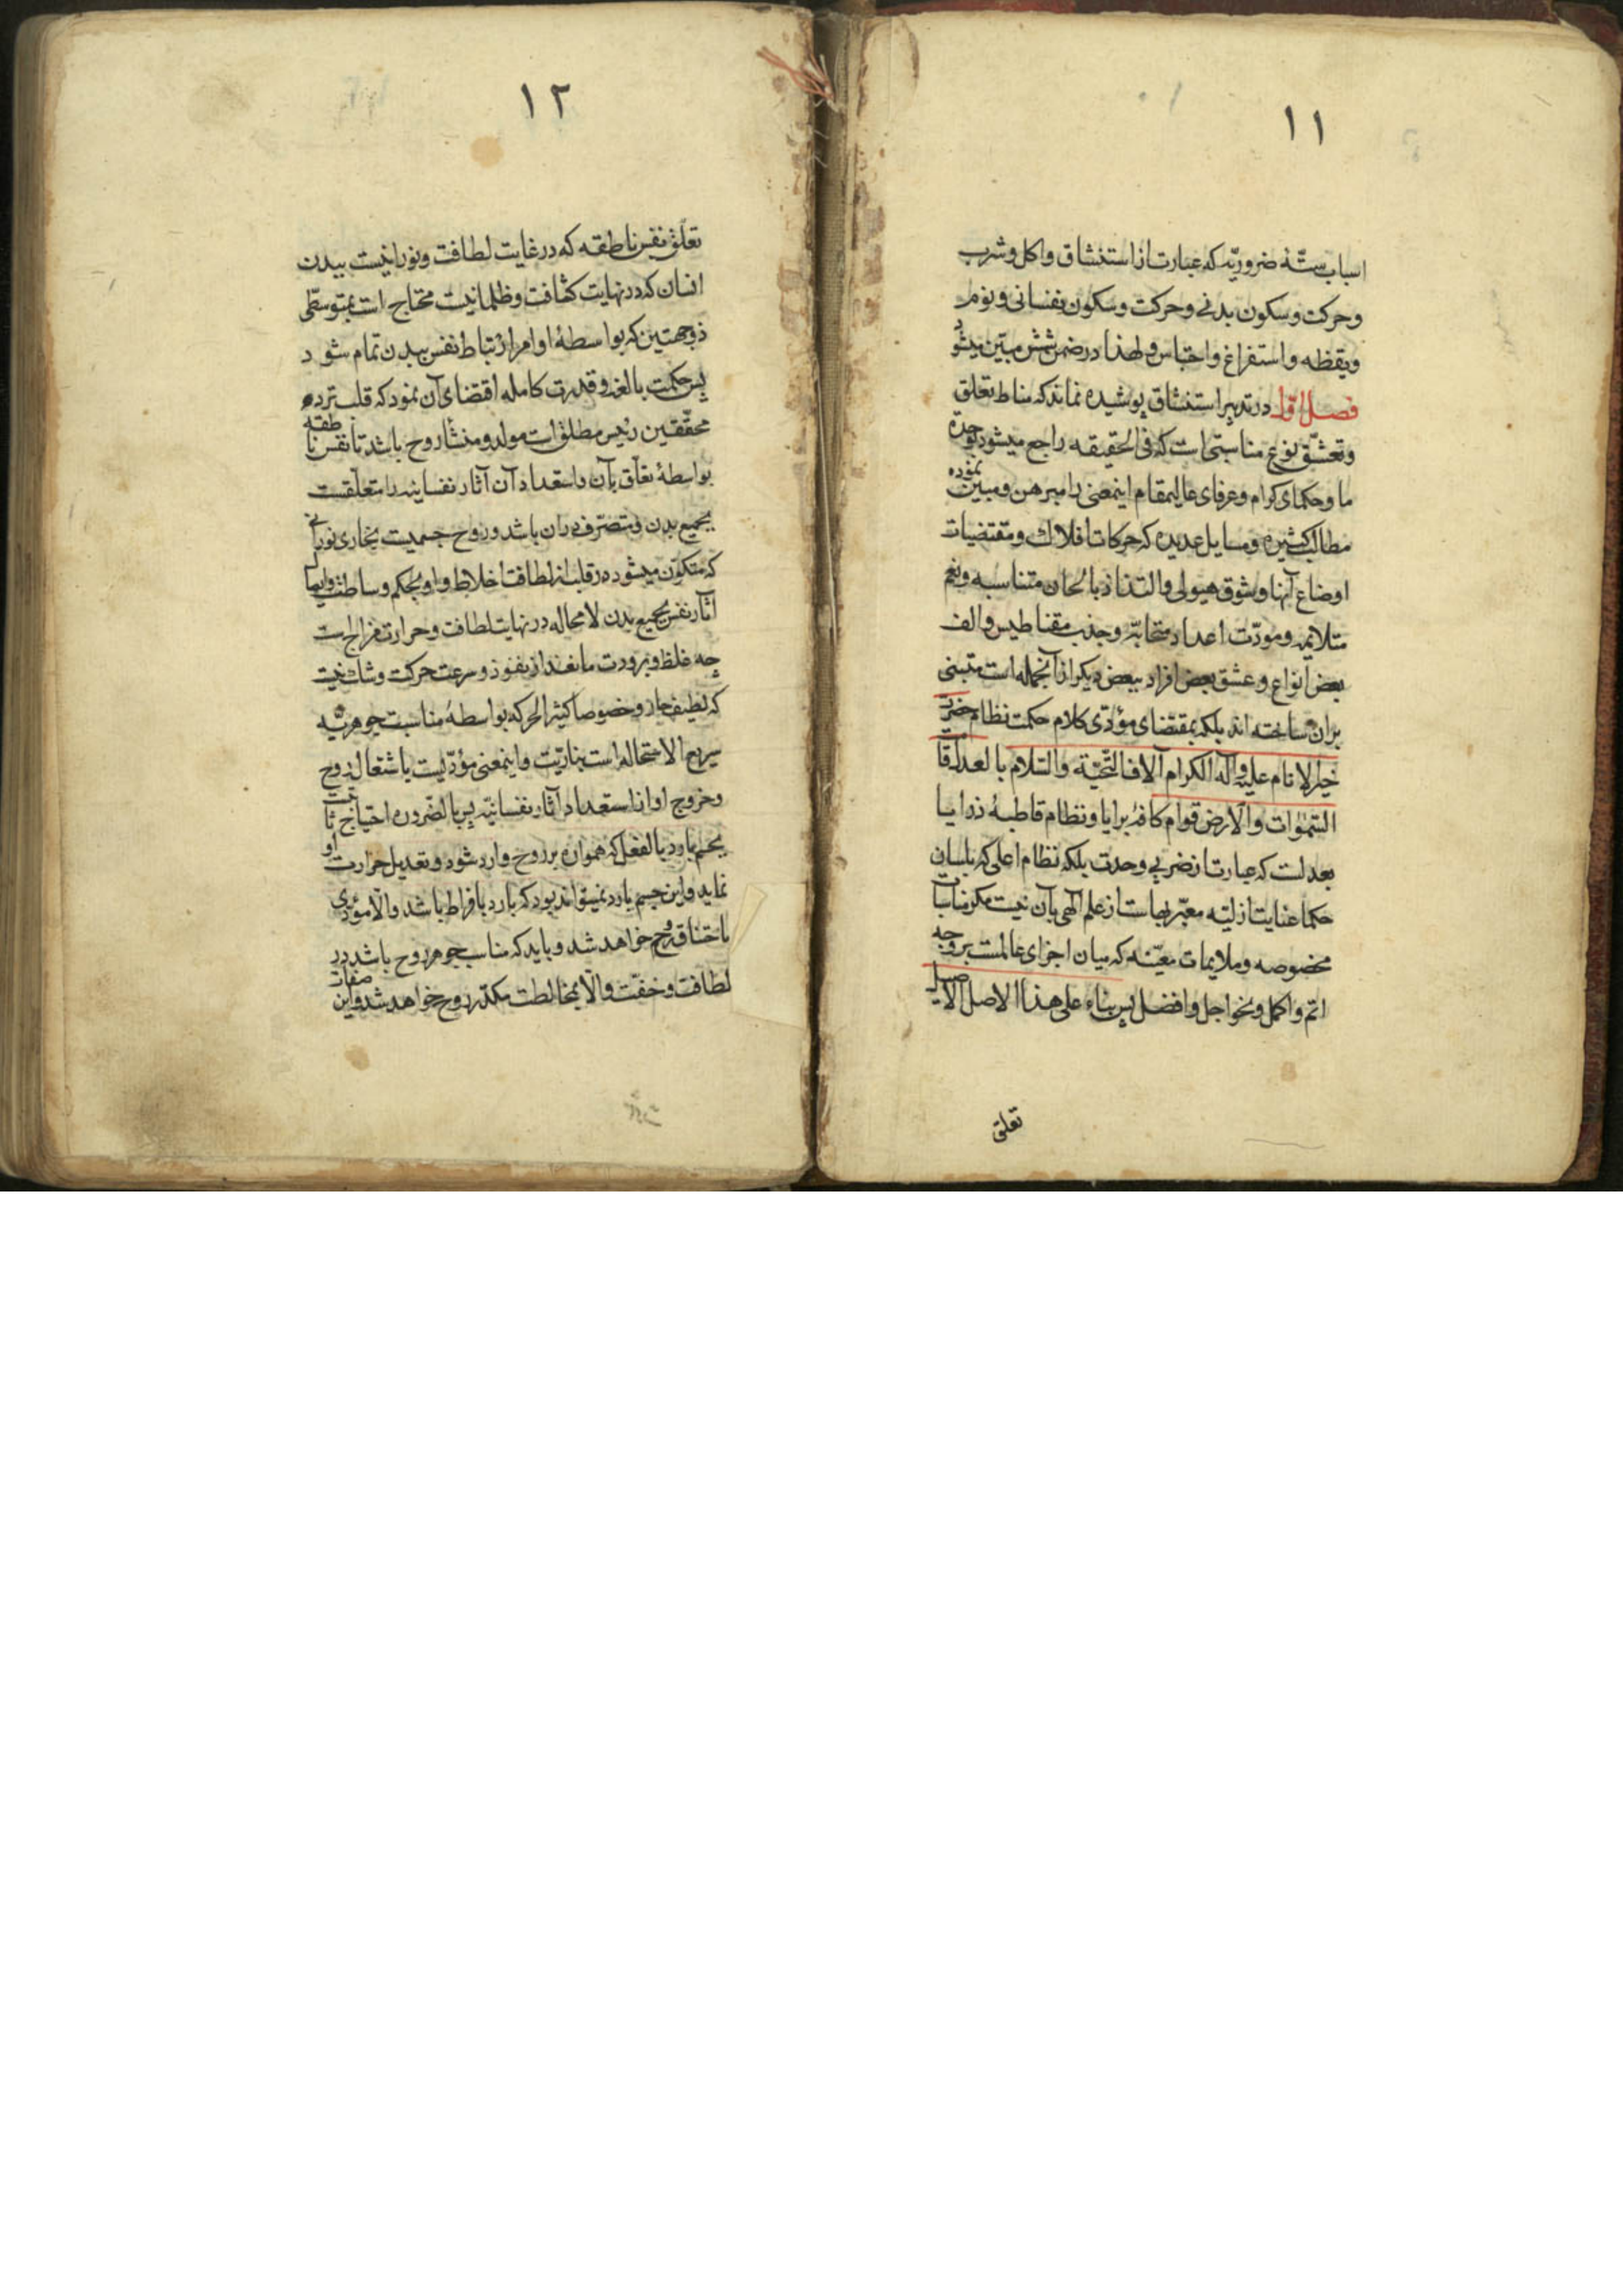 ۱۱
اسباب ستّهٔ ضروریّه که عبارت از استنشاق و اکل و شرب
و حرکت و سکون بدنی و حرکت و سکون نفسانی و نوم
و یقظه و استفراغ و احتباس و لهذا در ضمن شش مبیّن میشود
فصل اوّل در تدبیر استنشاق پوشیده نماند که مناط تعلق
و تعشّق نوع مناسبتی است که فی الحقیقه راجع میشود بوحدة
ما و حکمای کرام و عرفای عالیمقام اینمعنی را مبرهن و مبیّن نموده
مطالب کثیره و مسایل عدیده که حرکات افلاک و مقتضیات
اوضاع آنها و شوق هیولی و التذاذ بالحان متناسبه و نغم
متلایمه و مودّت اعداد متحابّه و جذب مقناطیس و الف
بعض انواع و عشق بعض افراد ببعض دیگر از آنجمله است مبتنی
بران ساخته اند بلکه بمقتضای مؤدّی کلام حکمت نظام حضرت
خیر الانام علیه و آله الکرام آلاف التّحیّة و السّلام بالعدل قامت
السّموات و الارض قوام کافهٔ برایا و نظام قاطبهٔ ذوایا
بعدلت که عبارت از ضربی وحدت بلکه نظام اعلی که بلسان
حکما عنایت ازلیّه معبّر بهاست از علم الهی بآن نیست مگر مناسبات
مخصوصه و ملایمات معیّنه که میان اجزای عالمست بر وجه
اتم و اکمل و نحو اجل و افضل پس بناء علی هذا الاصل الاصیل
تعلق
۱۲
تعلّق نفس ناطقه که در غایت لطافت و نورانیست ببدن
انسان که در نهایت کثافت و ظلمانیت محتاج است بمتوسّطی
ذو جهتین که بواسطهٔ او امر ارتباط نفس ببدن تمام شود
پس حکمت بالغه و قدرت کامله اقتضای آن نمود که قلب نزد
محقّقین رئیس مطلق است مولد و منشأ روح باشد تا نفس ناطقه
بواسطهٔ تعلّق بآن و استعداد آن آثار نفسانیه را متعلّقست
بجمیع بدن و متصرّف دران باشد و روح جسمیت بخاری نورانی
که متکوّن میشود در قلب از لطافت اخلاط و او بحکم وساطت و ایصال
آثار نفس بجمیع بدن لا محاله در نهایت لطافت و حرارت مزاج است
چه غلظ و برودت مانعند از نفوذ و سرعت حرکت و شک نیست
که لطیف حار و خصوصا کثیر الحرکه بواسطهٔ مناسبت جوهریّه
سریع الاستحاله است بناریّت و اینمعنی مؤدّیست باشتعال روح
و خروج او از استعداد آثار نفسانیّه پس بالضّروره احتیاج ثابت
بجسم بارد بالفعل که همواره بر روح وارد شود و تعدیل حرارت او
نماید و این جسم بارد نمیتواند بود که بارد بافراط باشد و الّا مؤدّی
باختناق روح خواهد شد و باید که مناسب جوهر روح باشد در
لطافت و خفّت و الّا بمخالطت مکدّر روح خواهد شد و این صفات